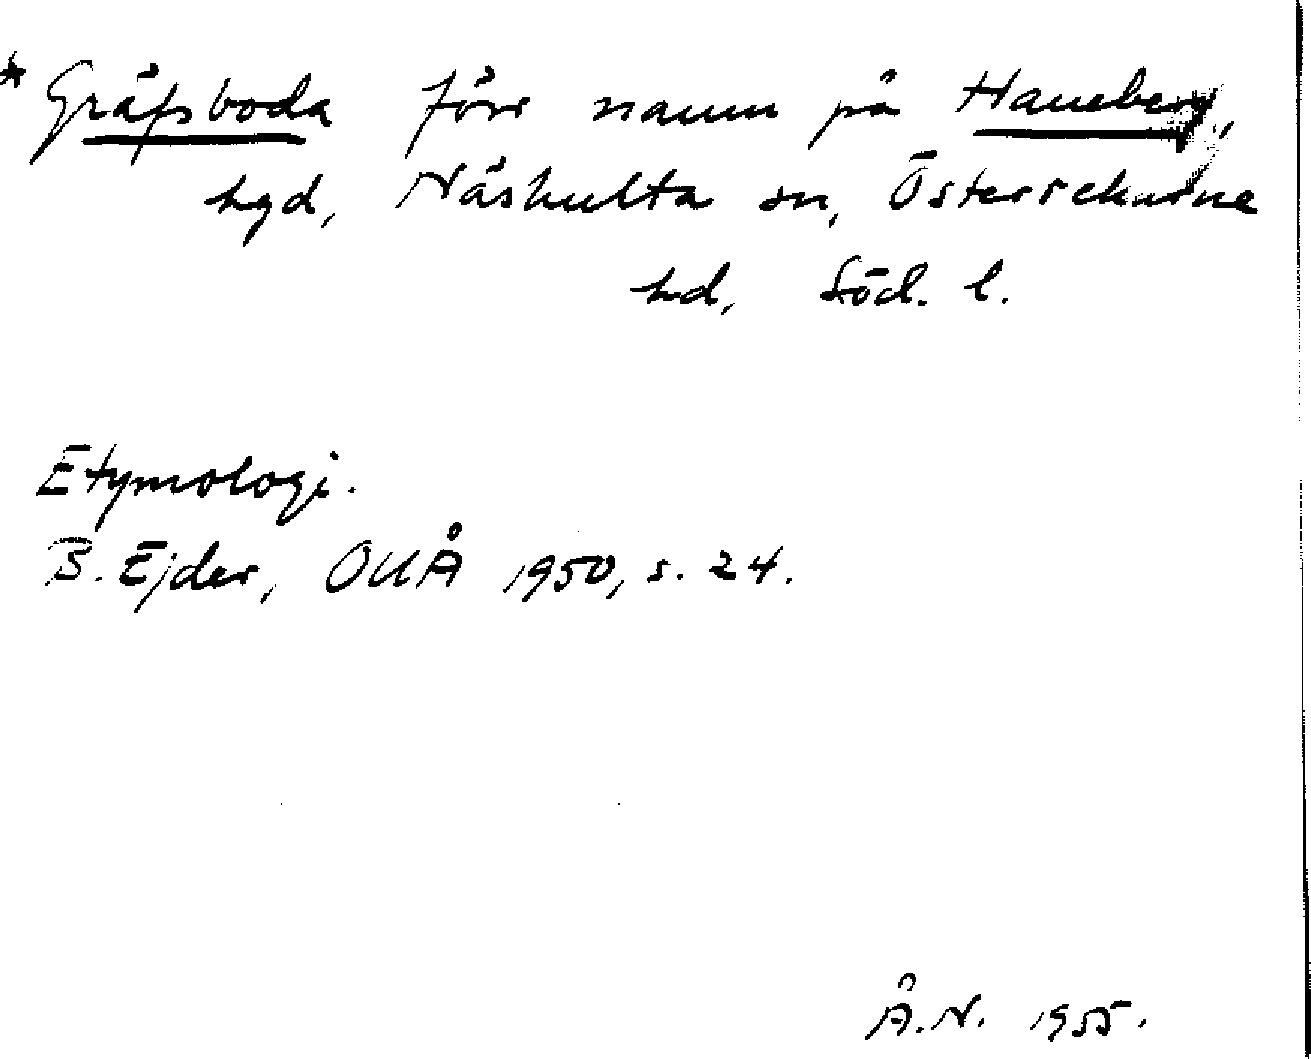 * Gräfsboda förr namn på Haneberg,
hgd, Näshulta sn, Österrekarne
hd, Söd. l.
Etymologi.
B. Ejder, OUÅ 1950, s. 24.
Å.N. 1955.